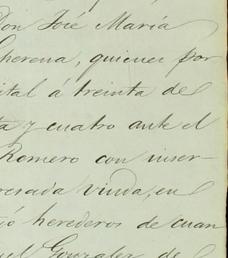 Don José María
herena, quienes por
ital á treinta de
ta y cuatro ante el
Romero con inser-
resada viuda, en
ió herederos de cuan
uel Gonzalez de